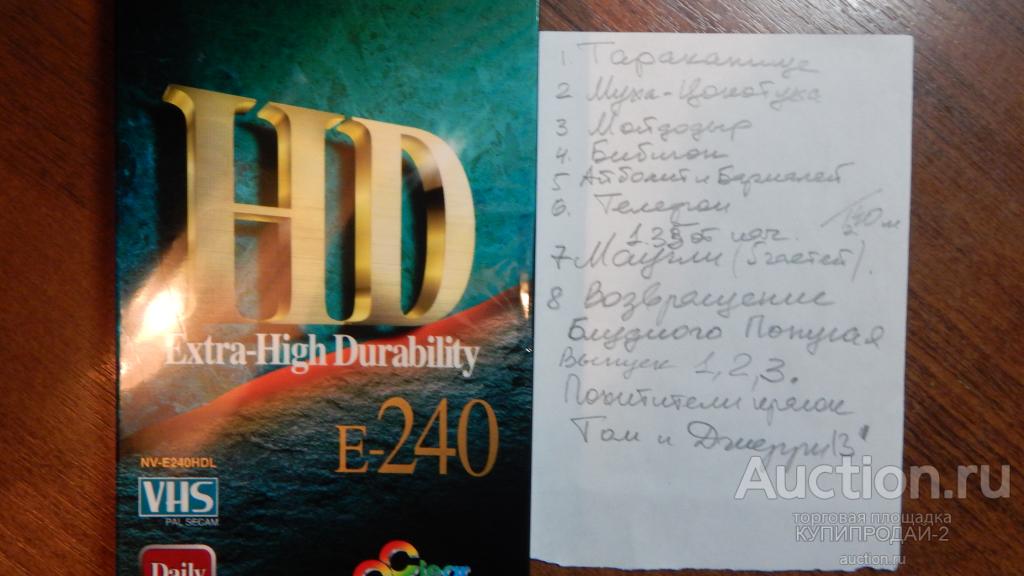 HD
Extra-High Durability
E-240
NV-E240HDL
VHS
PAL SECAM
Daily
1 Тараканище
2 Муха-Цокотуха
3 Мойдодыр
4. Бибигон
5 Айболит и Бармалей
6. Телефон
7 Маугли (5 частей).
8 Возвращение
Блудного Попугая
Выпуск 1,2,3.
Похитители ярлок
Том и Джерри
Auction.ru
торговая площадка
КУПИПРОДАЙ-2
auction.ru